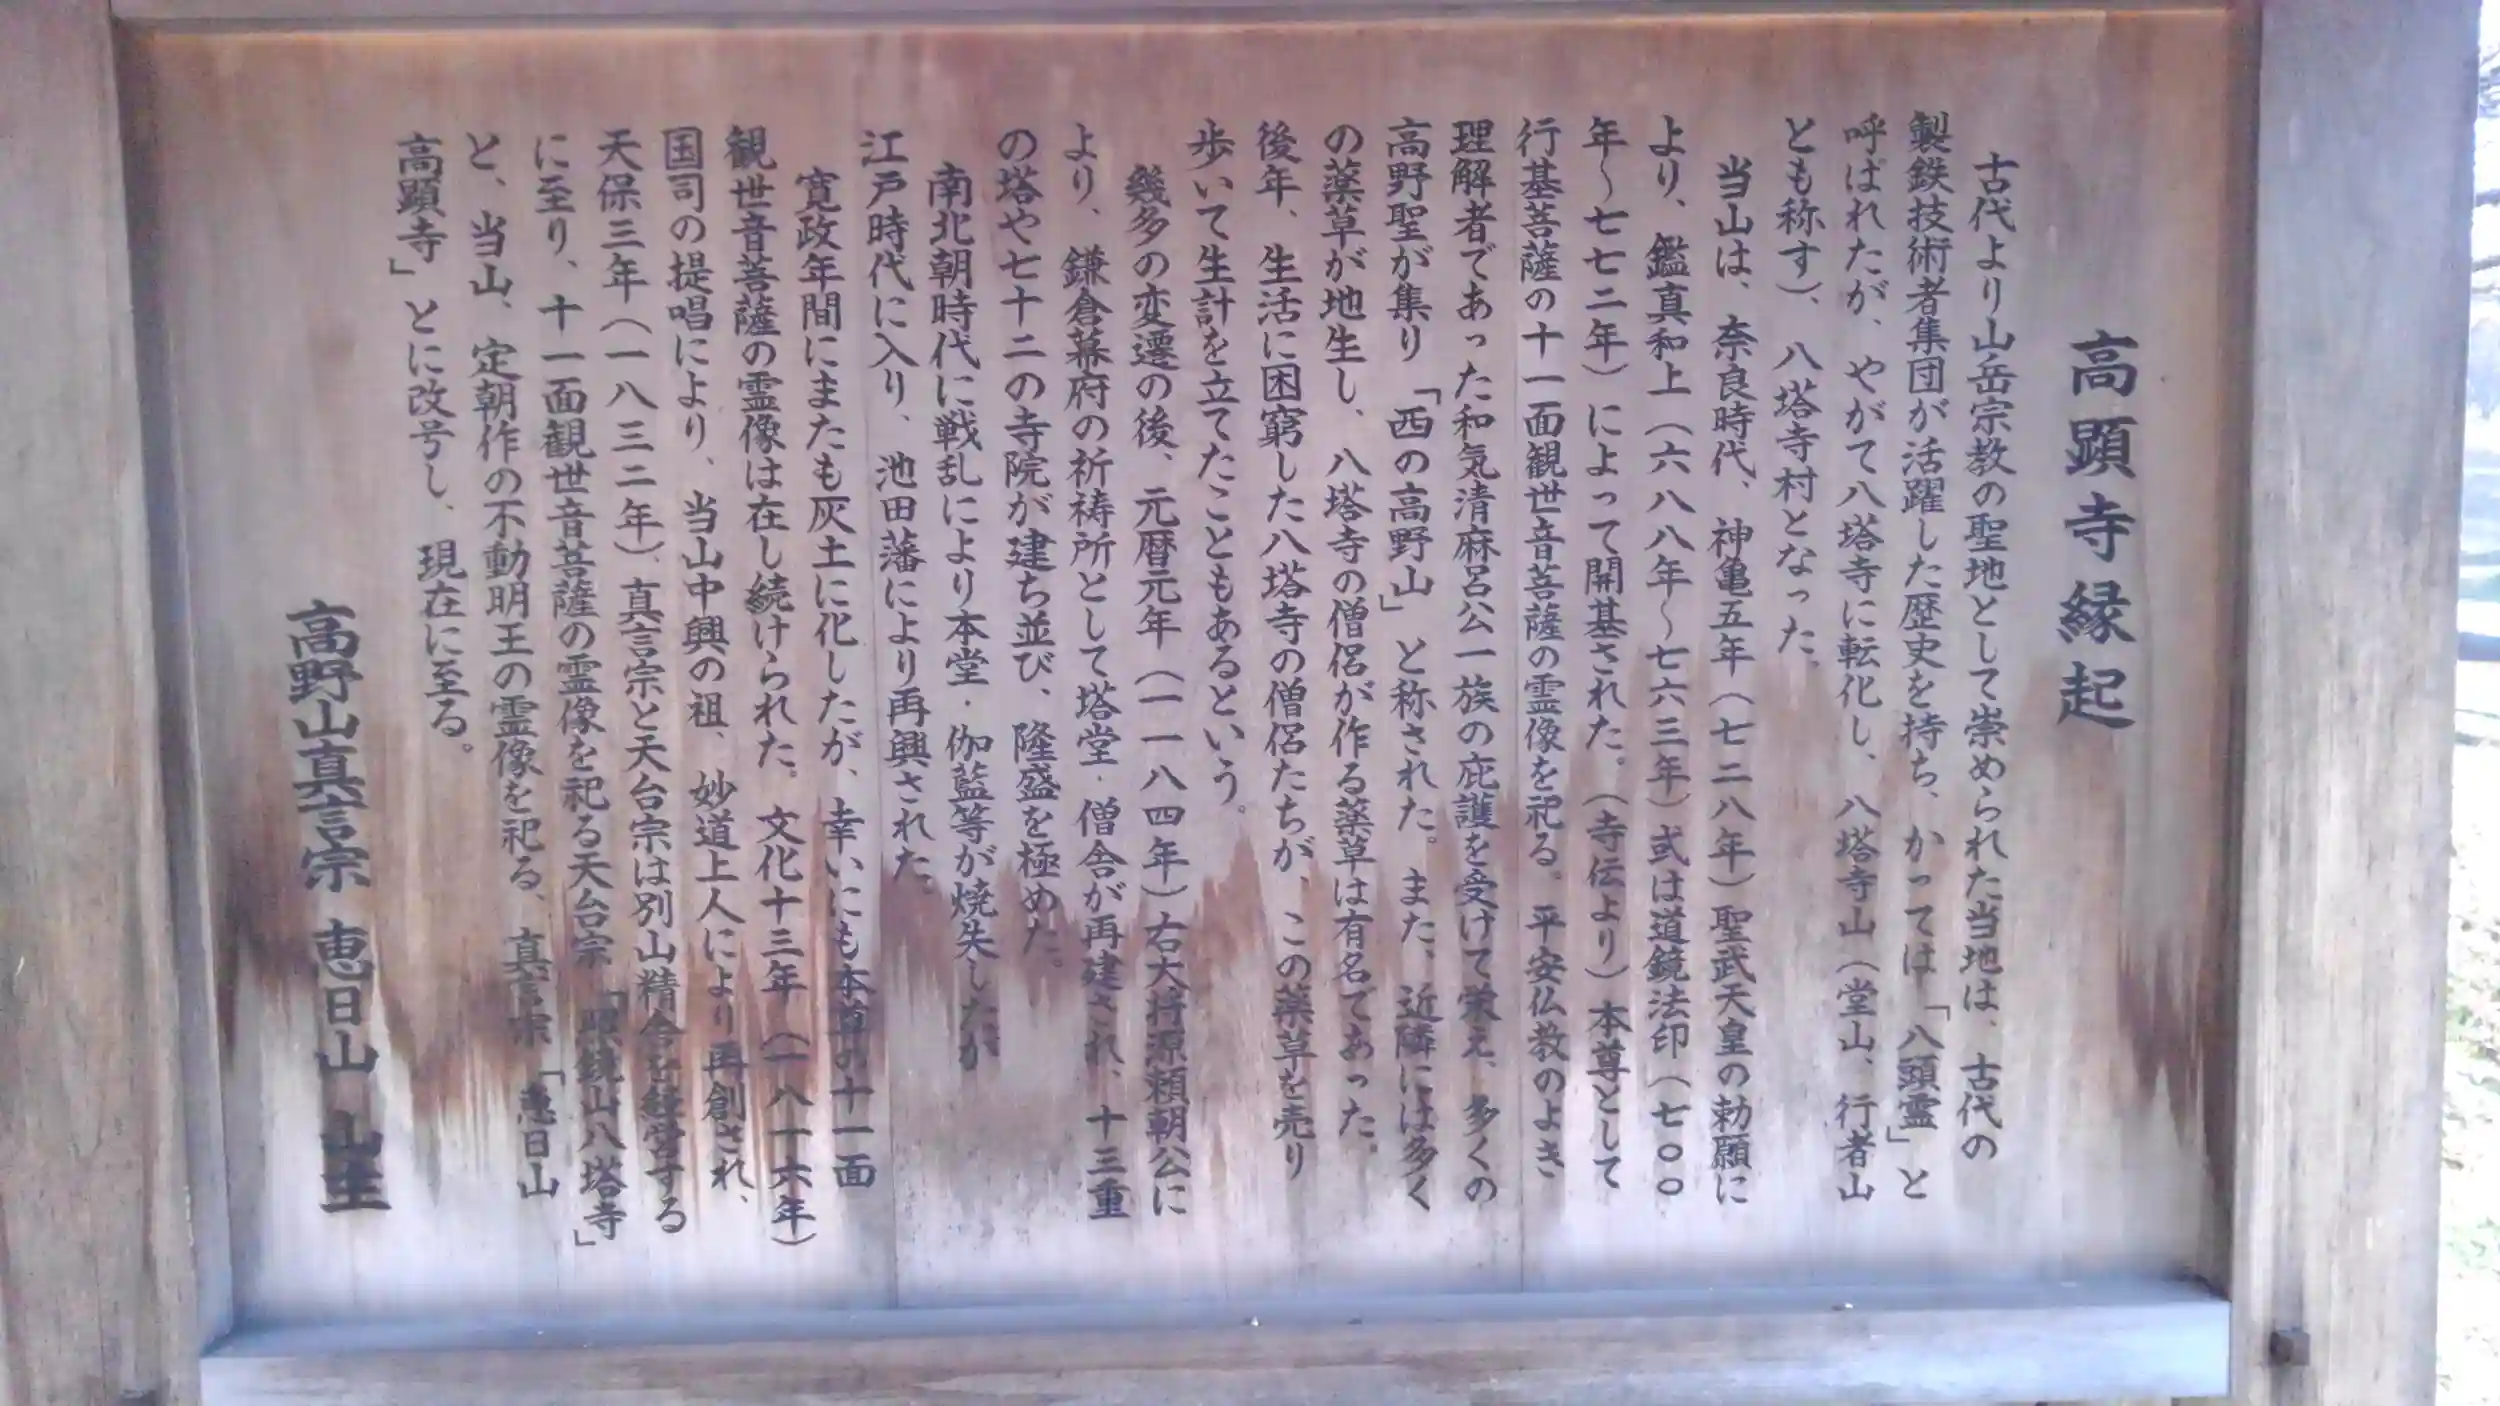 高顕寺縁起
古代より山岳宗教の聖地として崇められた当地は、古代の
製鉄技術者集団が活躍した歴史を持ち、かっては「八頭霊」と
呼ばれたが、やがて八塔寺に転化し、八塔寺山(堂山、行者山
とも称す)、八塔寺村となった。
当山は、奈良時代、神亀五年(七二八年)聖武天皇の勅願に
より、鑑真和上(六八八年～七六三年)或は道鏡法印(七〇〇
年～七七二年)によって開基された。(寺伝より)本尊として
行基菩薩の十一面観世音菩薩の霊像を祀る。平安仏教のよき
理解者であった和気清麻呂公一族の庇護を受けて栄え、多くの
高野聖が集り「西の高野山」と称された。また、近隣には多く
の薬草が地生し、八塔寺の僧侶が作る薬草は有名であった。
後年、生活に困窮した八塔寺の僧侶たちが、この薬草を売り
歩いて生計を立てたこともあるという。
幾多の変遷の後、元暦元年(一一八四年)右大将源頼朝公に
より、鎌倉幕府の祈祷所として塔堂·僧舎が再建され、十三重
の塔や七十二の寺院が建ち並び、隆盛を極めた。
南北朝時代に戦乱により本堂·伽藍等が焼失したが
江戸時代に入り、池田藩により再興された。
寛政年間にまたも灰土に化したが、幸いにも本尊の十一面
観世音菩薩の霊像は在し続けられた。文化十三年(一八一六年)
国司の提唱により、当山中興の祖、妙道上人により再創され、
天保三年(一八三二年)、真言宗と天台宗は別山精舎を経営する
に至り、十一面観世音菩薩の霊像を祀る天台宗「照鏡山八塔寺」
と、当山、定朝作の不動明王の霊像を祀る、真言宗「恵日山
高顕寺」とに改号し、現在に至る。
高野山真言宗 恵日山 山主